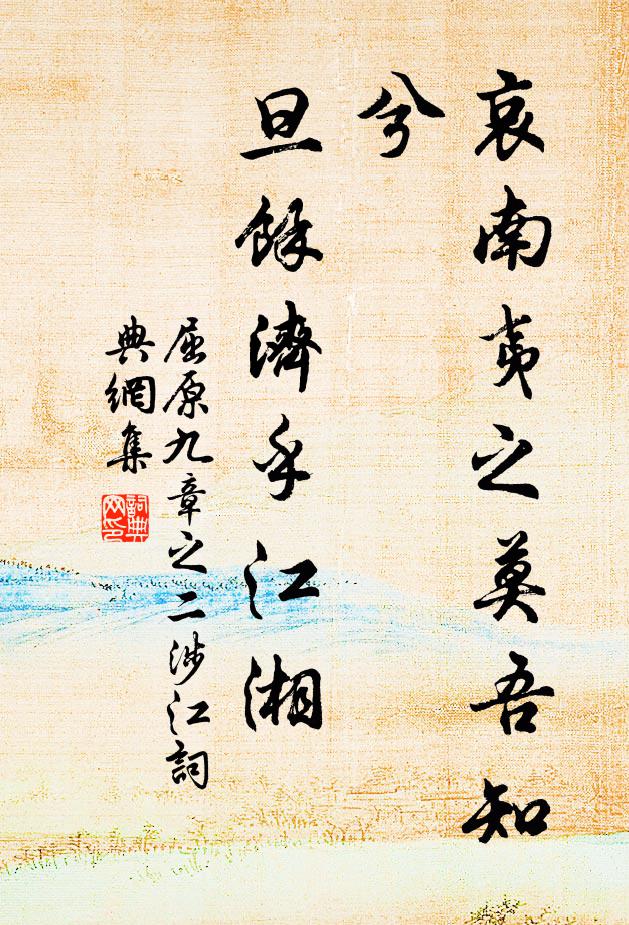 哀南夷之莫吾知
兮
旦餘濟乎江湘
屈原九章之二涉江詞
典網集
詞典
网印